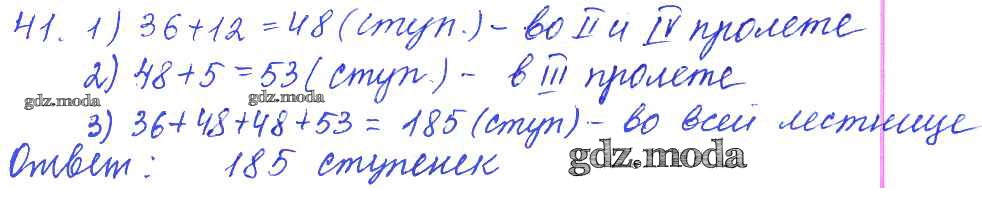 41. 1) 36+12=48 (ступ.) - во II и IV пролете
2) 48+5=53 (ступ.) - в III пролете
gdz.moda gdz.moda
3) 36+48+48+53=185 (ступ) - во всей лестнице
Ответ: 185 ступенек
gdz.moda